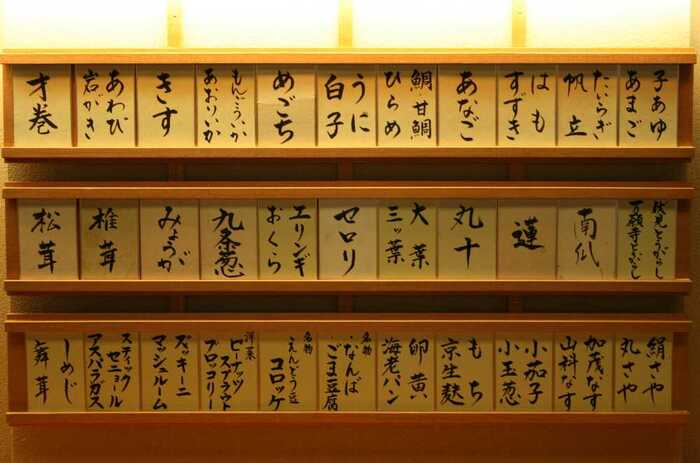 子あゆ
あまご
たいらぎ
帆立
はも
すずき
あなご
鯛 甘鯛
ひらめ
うに
白子
めごち
もんごういか
あおりいか
きす
あわび
岩がき
才巻
伏見とうがらし
万願寺とうがらし
南瓜
蓮
丸十
大葉
三ッ葉
セロリ
エリンギ
おくら
九条葱
みょうが
椎茸
松茸
絹さや
丸さや
加茂なす
山科なす
小茄子
小玉葱
もち
京生麩
卵黄
海老パン
名物
なんば
ごま豆腐
名物
えんどう豆
コロッケ
洋菜
ピーナッツ
スプラウト
ブロッコリー
ズッキーニ
マッシュルーム
スティック
セニョール
アスパラガス
しめじ
舞茸